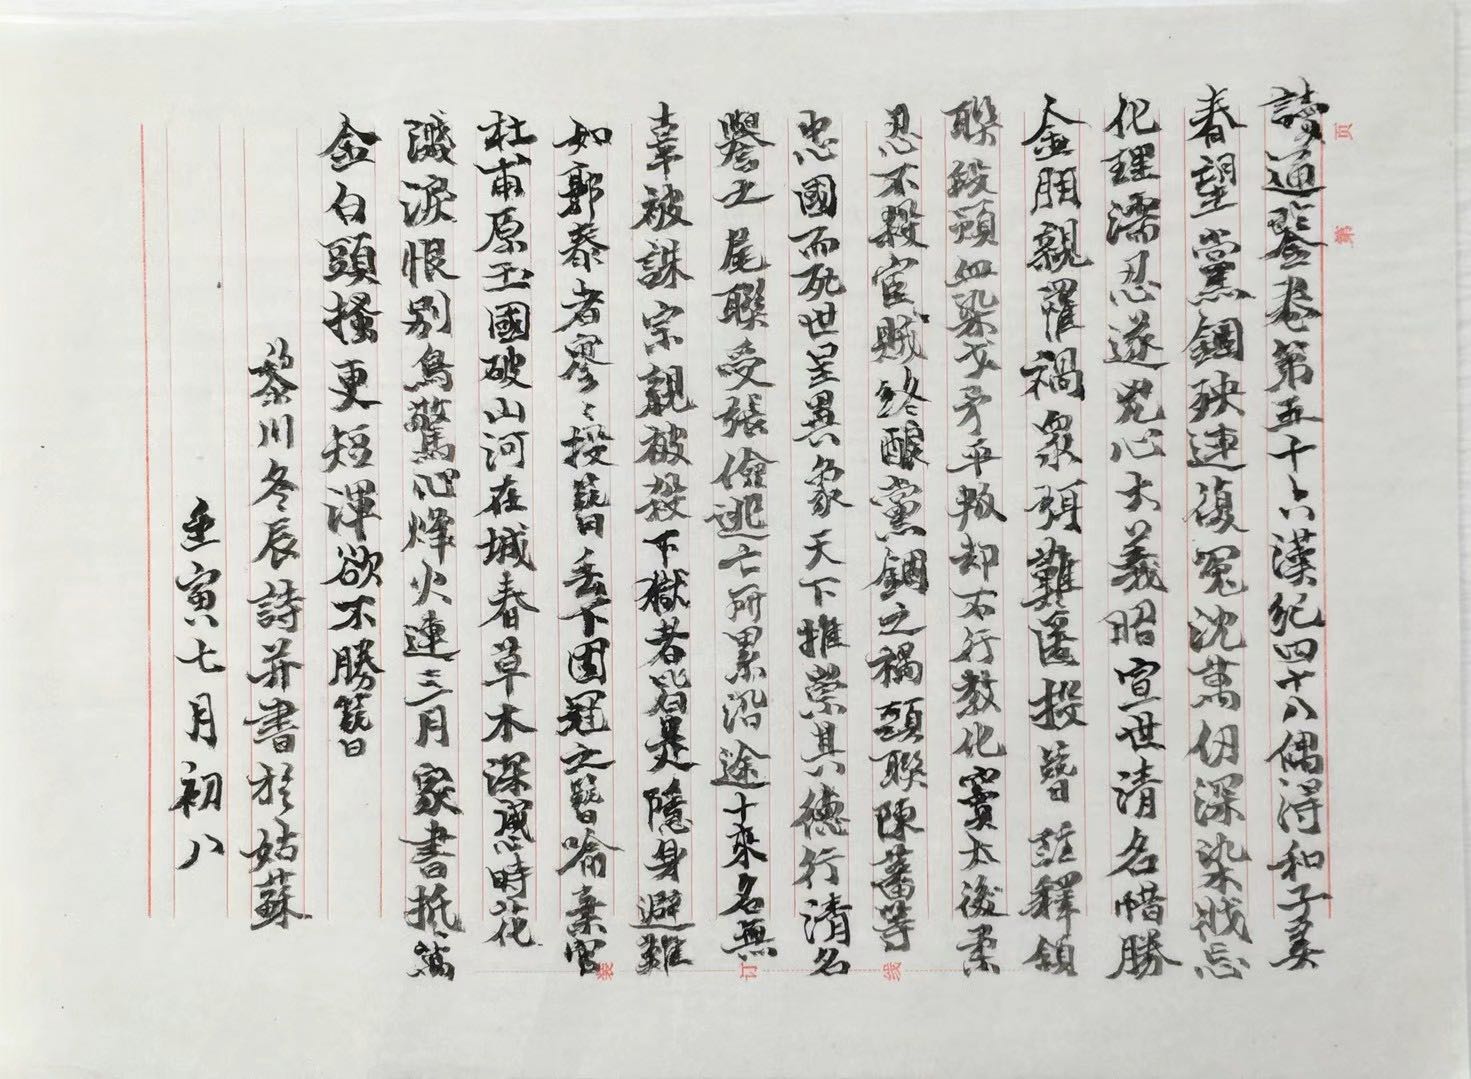 讀通鑒卷第五十六漢紀四十八偶得和子美
春望黨錮殃連復冤沈萬仞深染戕忘
化理濡忍遂兇心大義昭宣世清名惜勝
金胭親罹禍衆頸難匿投簪註釋頷
聯段頭血染戈矛平叛却不行教化竇太後柔
忍不殺宦賊終釀黨錮之禍頸聯陳蕃等
忠國而死世呈異象天下推崇其德行清名
譽之尾聯受張儉逃亡所累沿途十來名無
辜被誅宗親被殺下獄者皆是隱身避難
如郭泰者寥寥投簪丟下固冠之簪喻棄官
杜甫原玉國破山河在城春草木深感時花
濺淚恨別鳥驚心烽火連三月家書抵萬
金白頭搔更短渾欲不勝簪
黎川冬辰詩并書於姑蘇
壬寅七月初八
页
第
装
订
线